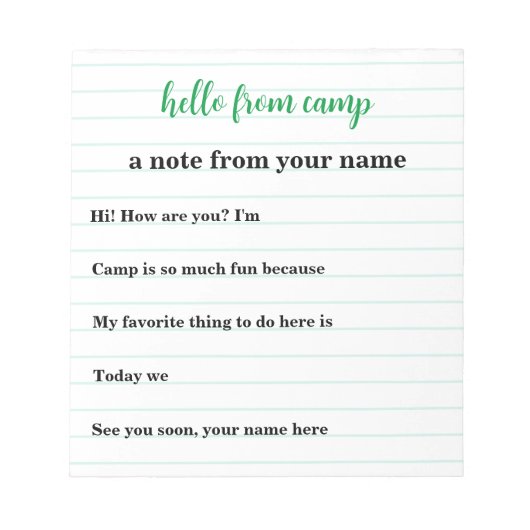 hello from camp
a note from your name
Hi! How are you? I'm
Camp is so much fun because
My favorite thing to do here is
Today we
See you soon, your name here